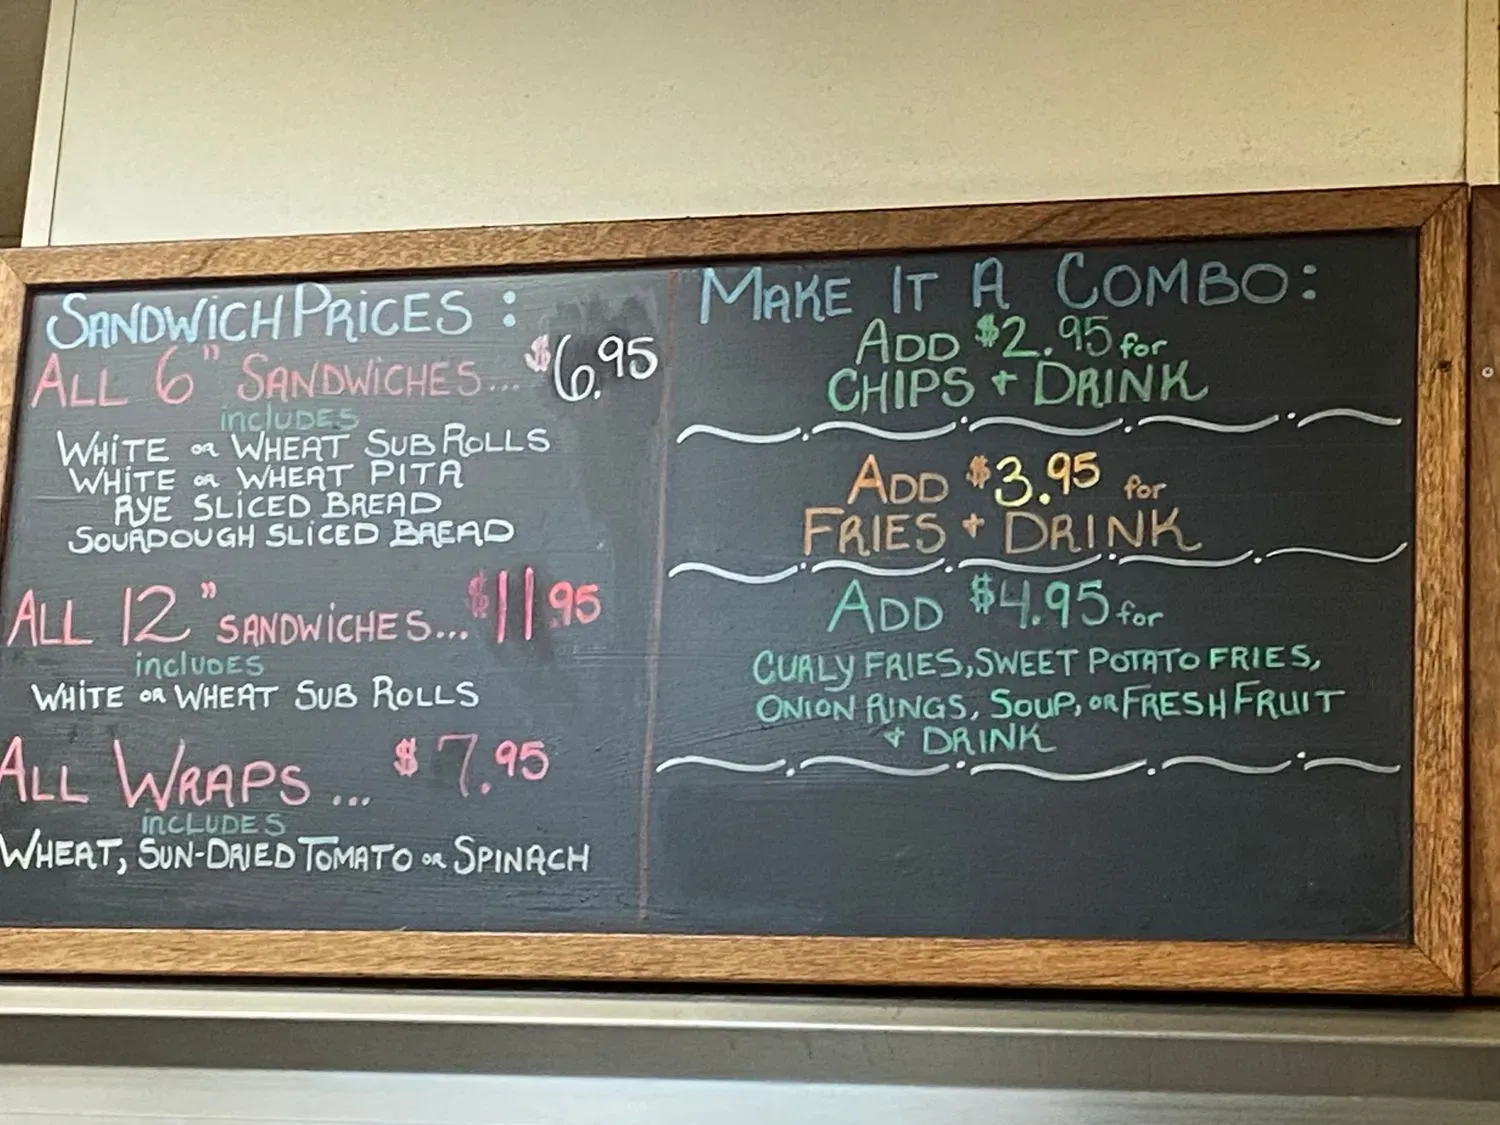 SANDWICH PRICES:
ALL 6" SANDWICHES... $6.95
includes
WHITE or WHEAT SUB ROLLS
WHITE or WHEAT PITA
RYE SLICED BREAD
SOURDOUGH SLICED BREAD
ALL 12" SANDWICHES... $11.95
includes
WHITE OR WHEAT SUB ROLLS
ALL WRAPS... $7.95
includes
WHEAT, SUN-DRIED TOMATO or SPINACH
MAKE IT A COMBO:
ADD $2.95 for
CHIPS + DRINK
ADD $3.95 for
FRIES + DRINK
ADD $4.95 for
CURLY FRIES, SWEET POTATO FRIES,
ONION RINGS, SOUP, OR FRESH FRUIT
+ DRINK